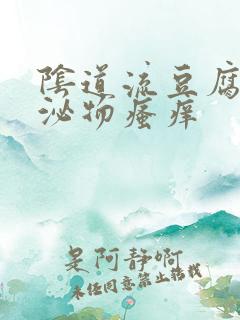 陰道流豆腐
泌物瘙痒
是阿静啊
未经同意禁止搭载